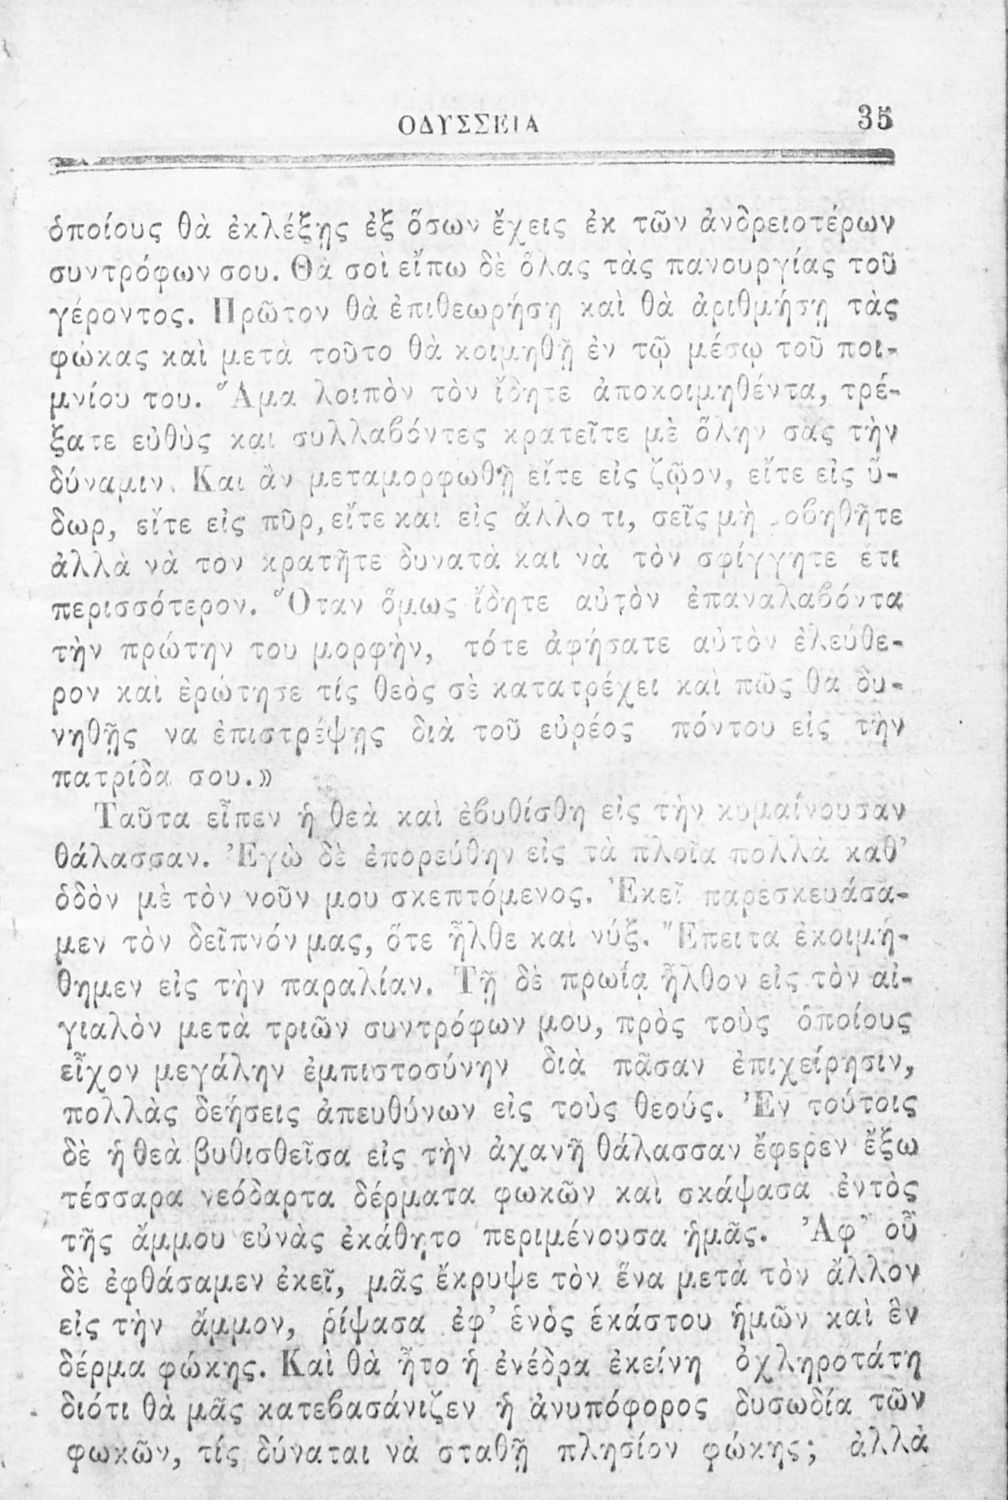 ΟΔΥΣΣΕΙΑ 35
ὁποίους θὰ ἐκλέξῃς ἐξ ὅσων ἔχεις ἐκ τῶν ἀνδρειοτέρων
συντρόφων σου. Θὰ σοὶ εἴπω δὲ ὅλας τὰς πανουργίας τοῦ
γέροντος. Πρῶτον θὰ ἐπιθεωρήσῃ καὶ θὰ ἀριθμήσῃ τὰς
φώκας καὶ μετὰ τοῦτο θὰ κοιμηθῇ ἐν τῷ μέσῳ τοῦ ποι-
μνίου του. Ἅμα λοιπὸν τὸν ἴδητε ἀποκοιμηθέντα, τρέ-
ξατε εὐθὺς και συλλαβόντες κρατεῖτε μὲ ὅλην σας τὴν
δύναμιν. Και ἂν μεταμορφωθῇ εἴτε εἰς ζῷον, εἴτε εἰς ὕ-
δωρ, εἴτε εἰς πῦρ, εἴτε και εἰς ἄλλο τι, σεῖς μὴ φοβηθῆτε
ἀλλὰ νὰ τον κρατῆτε δυνατὰ και νὰ τὸν σφίγγητε ἔτι
περισσότερον. Ὅταν ὅμως ἴδητε αὐτὸν ἐπαναλαβόντα
τὴν πρώτην του μορφὴν, τότε ἀφήσατε αὐτὸν ἐλεύθε-
ρον καὶ ἐρώτησε τίς θεὸς σὲ κατατρέχει καὶ πῶς θα δυ-
νηθῇς να ἐπιστρέψῃς διὰ τοῦ εὐρέος πόντου εἰς τὴν
πατρίδα σου.»
Ταῦτα εἶπεν ἡ θεὰ καὶ ἐβυθίσθη εἰς τὴν κυμαίνουσαν
θάλασσαν. Ἐγὼ δὲ ἐπορεύθην εἰς τὰ πλοῖα πολλὰ καθ’
ὁδὸν μὲ τὸν νοῦν μου σκεπτόμενος. Ἐκεῖ παρεσκευάσα-
μεν τὸν δεῖπνόν μας, ὅτε ἦλθε και νύξ. Ἔπειτα ἐκοιμή-
θημεν εἰς τὴν παραλίαν. Τῇ δὲ πρωίᾳ ἦλθον εἰς τὸν αἰ-
γιαλὸν μετὰ τριῶν συντρόφων μου, πρὸς τοὺς ὁποίους
εἶχον μεγάλην ἐμπιστοσύνην διὰ πᾶσαν ἐπιχείρησιν,
πολλὰς δεήσεις ἀπευθύνων εἰς τοὺς θεούς. Ἐν τούτοις
δὲ ἡ θεὰ βυθισθεῖσα εἰς τὴν ἀχανῆ θάλασσαν ἔφερεν ἔξω
τέσσαρα νεόδαρτα δέρματα φωκῶν καὶ σκάψασα ἐντὸς
τῆς ἄμμου εὐνὰς ἐκάθητο περιμένουσα ἡμᾶς. Ἀφ’ οὗ
δὲ ἐφθάσαμεν ἐκεῖ, μᾶς ἔκρυψε τὸν ἕνα μετὰ τὸν ἄλλον
εἰς τὴν ἄμμον, ῥίψασα ἐφ’ ἑνὸς ἑκάστου ἡμῶν καὶ ἓν
δέρμα φώκης. Καὶ θὰ ἦτο ἡ ἐνέδρα ἐκείνη ὀχληροτάτη
διότι θὰ μᾶς κατεβασάνιζεν ἡ ἀνυπόφορος δυσωδία τῶν
φωκῶν, τίς δύναται νὰ σταθῇ πλησίον φώκης; ἀλλὰ